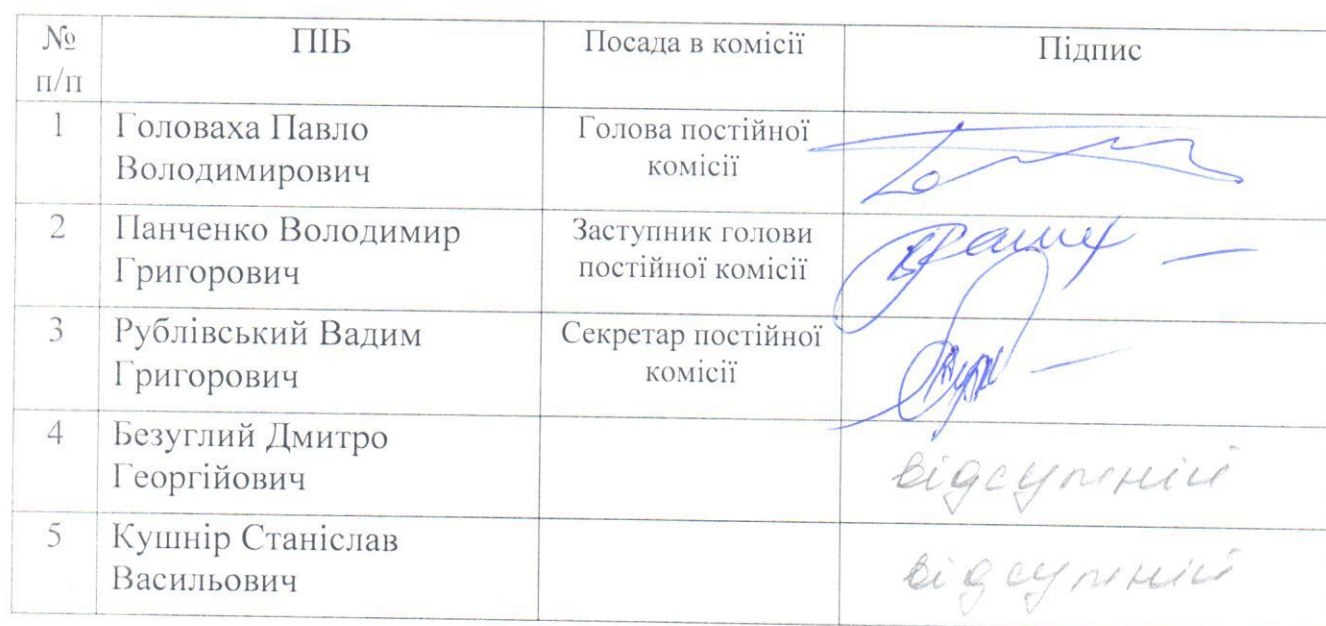 № п/п ПІБ Посада в комісії Підпис
1 Головаха Павло Володимирович Голова постійної комісії
2 Панченко Володимир Григорович Заступник голови постійної комісії
3 Рублівський Вадим Григорович Секретар постійної комісії
4 Безуглий Дмитро Георгійович відсутній
5 Кушнір Станіслав Васильович відсутній